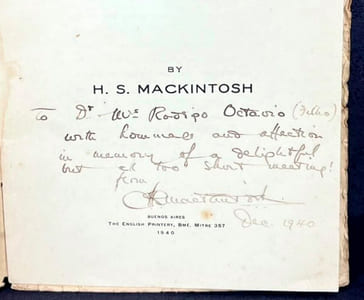 BY
H. S. MACKINTOSH
To Dr Mrs Rodrigo Octavio (Filho)
with hommage and affection
in memory of a delightful
but all too short meeting!
from
HSMackintosh
Dec. 1940
BUENOS AIRES
THE ENGLISH PRINTERY, BMÉ. MITRE 357
1940